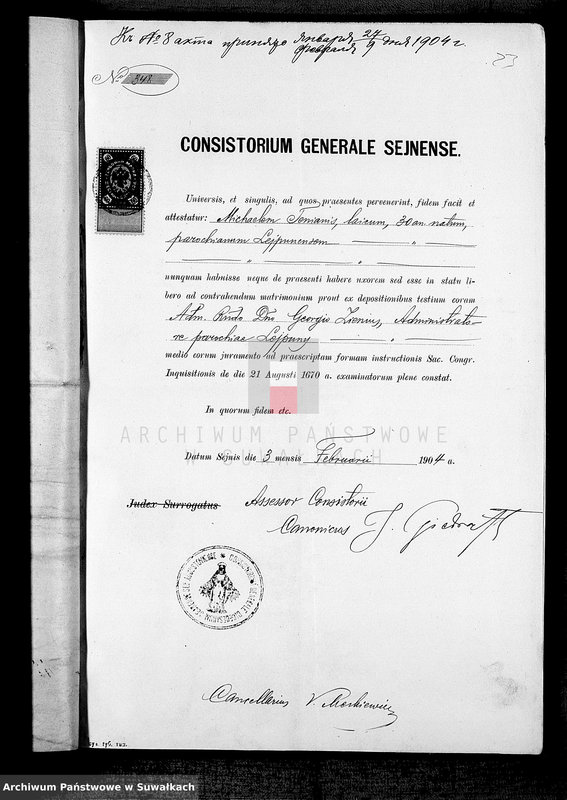 Къ № 8 акта принято января 27 / февраля 9 дня 1904 г.
23
№ 348
CONSISTORIUM GENERALE SEJNENSE.
Universis, et singulis, ad quos praesentes pervenerint, fidem facit et
attestatur: Michaelem Tomanis, laicum, 30 an natum,
parochianum Lejpunensem — „ —
— „ — „ —
nunquam habuisse neque de praesenti habere uxorem sed esse in statu li-
bero ad contrahendum matrimonium prout ex depositionibus testium coram
Adm. Rndo Dno Georgio Administrato-
re parochiae Lejpuny — „ —
medio eorum juramento ad praescriptam formam instructionis Sac. Congr.
Inquisitionis de die 21 Augusti 1670 a. examinatorum plene constat.
In quorum fidem etc.
ARCHIWUM PAŃSTWOWE
W SUWAŁKACH
Datum Sejnis die 3 mensis Februarii 1904 a.
Judex Surrogatus Assessor Consistorii
Canonicus J. Giedrojć
Cancellarius V.
Archiwum Państwowe w Suwałkach